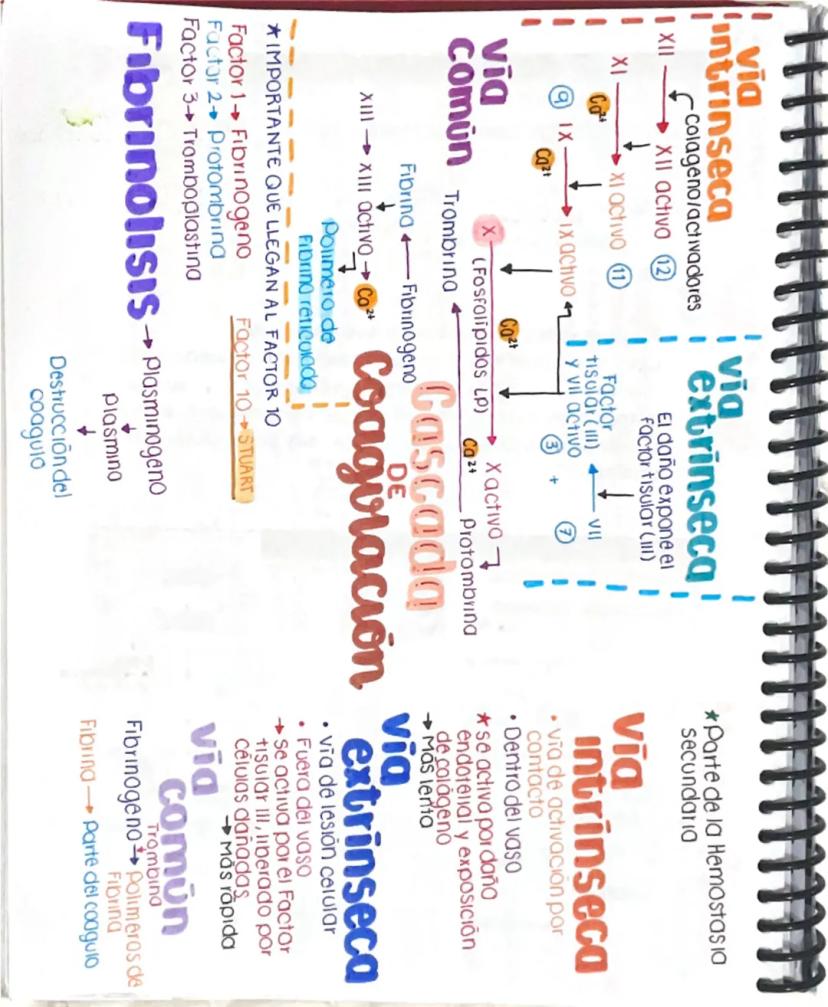 Vía
intrínseca
colágeno/activadores
XII → XII activo (12)
XI → XI activo (11)
Ca²⁺
(9) IX → IX activo
Ca²⁺
Vía
extrínseca
El daño expone el
Factor tisular (III)
Factor
tisular (III) ← VII
y VII activo
(3) + (7)
Vía
común
Ca²⁺
X (Fosfolípidos LP) → X activo
Ca²⁺
Trombina ← Protombrina
Fibrina ← Fibrinogeno
XIII → XIII activo → Ca²⁺
Polimero de
Fibrina reticulada
Cascada
DE
Coagulación
★ IMPORTANTE QUE LLEGAN AL FACTOR 10
Factor 1 → Fibrinogeno
Factor 2 → Protombrina
Factor 3 → Tromboplastina
Factor 10 → STUART
Fibrinolisis → Plasminogeno
↓
plasmina
↓
Destrucción del
coagulo
★ Parte de la Hemostasia
secundaria
Vía
intrínseca
• Vía de activación por
contacto
• Dentro del vaso
★ Se activa por daño
endotelial y exposición
de colágeno
→ Más lenta
Vía
extrínseca
• Vía de lesión celular
• Fuera del vaso
→ Se activa por el Factor
tisular III, liberado por
células dañadas
→ Más rápida
Vía
común
Trombina
Fibrinogeno → Polimeros de
Fibrina
Fibrina → Parte del coagulo